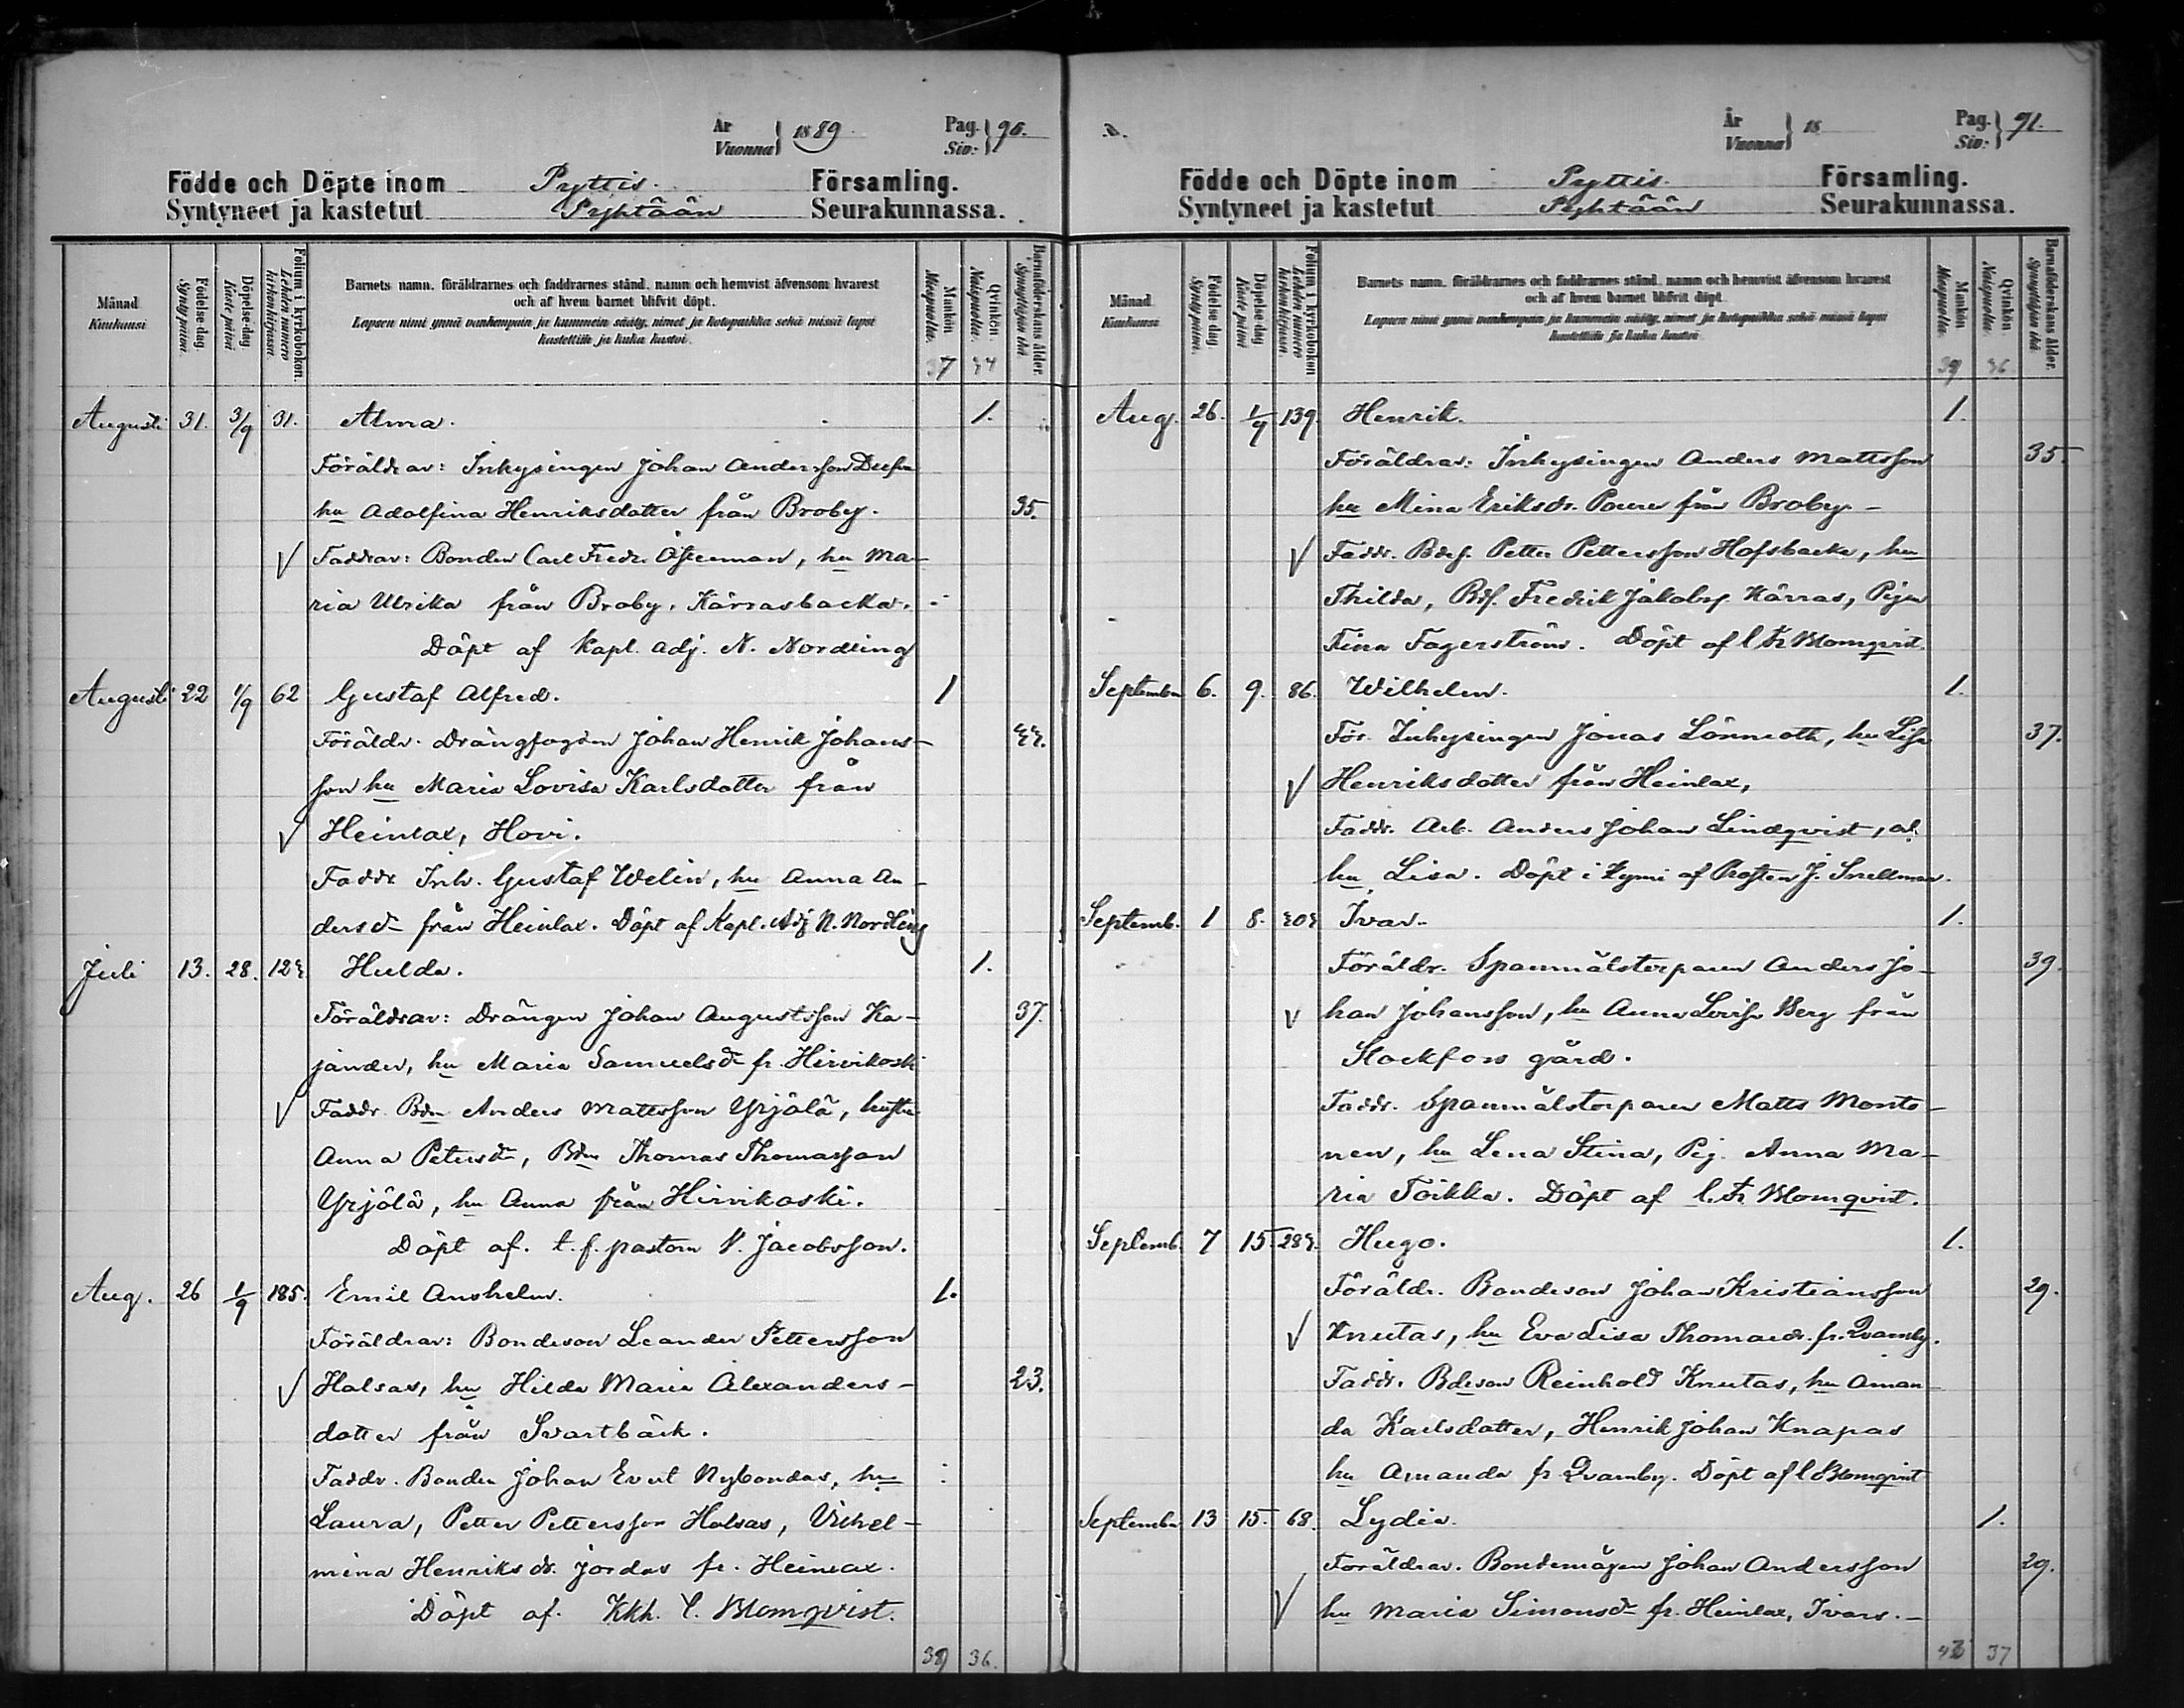 År
Vuonna } 1889
Pag.
Siv: } 90.
Födde och Döpte inom Pyttis. Församling.
Syntyneet ja kastetut Pyhtään Seurakunnassa.
Månad
Kuukausi
Födelse dag.
Synty päivä.
Döpelse-dag.
Kaste päivä
Folium i kyrkoboken.
Lehden numero kirkonkirjassa.
Barnets namn, föräldrarnes och faddrarnes stånd, namn och hemvist äfvensom hvarest
och af hvem barnet blifvit döpt.
Lapsen nimi ynnä vanhempain ja kummein sääty, nimet ja kotopaikka sekä missä lapsi
kastettiin ja kuka kastoi.
Mankön
Miespuolia.
Qvinkön.
Naispuolia.
Barnaföderskans ålder.
Synnyttäjän ikä.
37 34
Augusti 31. 3/9 31. Alma. 1.
Föräldrar: Inhysingen Johan Andersson
hu Adolfina Henriksdotter från Broby. 35.
Faddrar: Bonden Carl Fredr. Österman, hu Ma-
ria Ulrika från Broby, Kärrasbacka.
Döpt af Kapl. adj. N. Nordling
Augusti 22 1/9 62 Gustaf Alfred. 1
Föräldr. Drängfogden Johan Henrik Johans- 44.
son hu Maria Lovisa Karlsdotter från
Heinlax, Hovi.
Faddr Inh. Gustaf Welin, hu Anna An-
dersdr från Heinlax. Döpt af Kapl. Adj N. Nordling
Juli 13. 28. 124 Hulda. 1.
Föräldrar: Drängen Johan Augustsson Ka- 37.
jander, hu Maria Samuelsdr fr. Hirvikoski
Faddr. Bdn Anders Mattsson Yrjälä, hustru
Anna Petersdr, Bdn Thomas Thomasson
Yrjälä, hu Anna från Hirvikoski.
Döpt af. t.f. pastorn V. Jacobsson.
Aug. 26 1/9 185. Emil Anshelm. 1.
Föräldrar: Bondeson Leander Pettersson
Halsas, hu Hilda Maria Alexanders- 23.
dotter från Svartbäck.
Faddr. Bonden Johan Evert Nybondas, hu
Laura, Petter Pettersson Halsas, Vilhel-
mina Henriksdr. Jordas fr. Heinlax.
Döpt af. Kkh. C. Blomqvist.
39 36.
År
Vuonna } 18
Pag.
Siv: } 91.
Födde och Döpte inom Pyttis. Församling.
Syntyneet ja kastetut Pyhtään Seurakunnassa.
Månad
Kuukausi
Födelse dag.
Synty päivä.
Döpelse-dag.
Kaste päivä
Folium i kyrkoboken
Lehden numero kirkonkirjassa.
Barnets namn, föräldrarnes och faddrarnes stånd, namn och hemvist äfvensom hvarest
och af hvem barnet blifvit döpt.
Lapsen nimi ynnä vanhempain ja kummein sääty, nimet ja kotopaikka sekä missä lapsi
kastettiin ja kuka kastoi.
Mankön
Miespuolia.
Qvinkön.
Naispuolia.
Barnaföderskans ålder.
Synnyttäjän ikä.
39 36
Aug. 26. 1/9 139. Henrik. 1.
Föräldrar: Inhysingen Anders Mattsson 35.
hu Mina Eriksdr. från Broby -
Faddr. Bdes. Petter Pettersson Hofsbacka, hu
Thilda, Bds. Fredrik Jakobs. Kärras, Pigan
Fina Fagerström. Döpt af C Fr Blomqvist.
September 6. 9. 86. Wilhelm. 1.
För. Inhysingen Jonas Lönnroth, hu Lisa 37.
Henriksdotter från Heinlax,
Faddr. Arb. Anders Johan Lindqvist,
hu Lisa. Döpt i Kymi af Prosten J. Snellman.
Septemb. 1 8. 404 Ivar. 1.
Föräldr. Spanmålstorparen Anders Jo- 39.
han Johansson, hu Anna Lovisa Berg från
Stockfors gård.
Faddr. Spanmålstorparen Matts Monto-
nen, hu Lena Stina, Pig. Anna Ma-
ria Toikka. Döpt af C. Fr Blomqvist.
Septemb. 7 15. 284. Hugo. 1.
Föräldr. Bondeson Johan Kristiansson 29.
Knutas, hu Eva Lisa Thomasdr. fr. Qvarnby.
Faddr. Bdeson Reinhold Knutas, hu Aman-
da Karlsdotter, Henrik Johan Knapas
hu Amanda fr Qvarnby. Döpt af C Blomqvist
September 13 15. 68. Lydia. 1.
Föräldrar. Bondemågen Johan Andersson 29.
hu Maria Simonsdr fr. Heinlax, Ivars.-
43 37